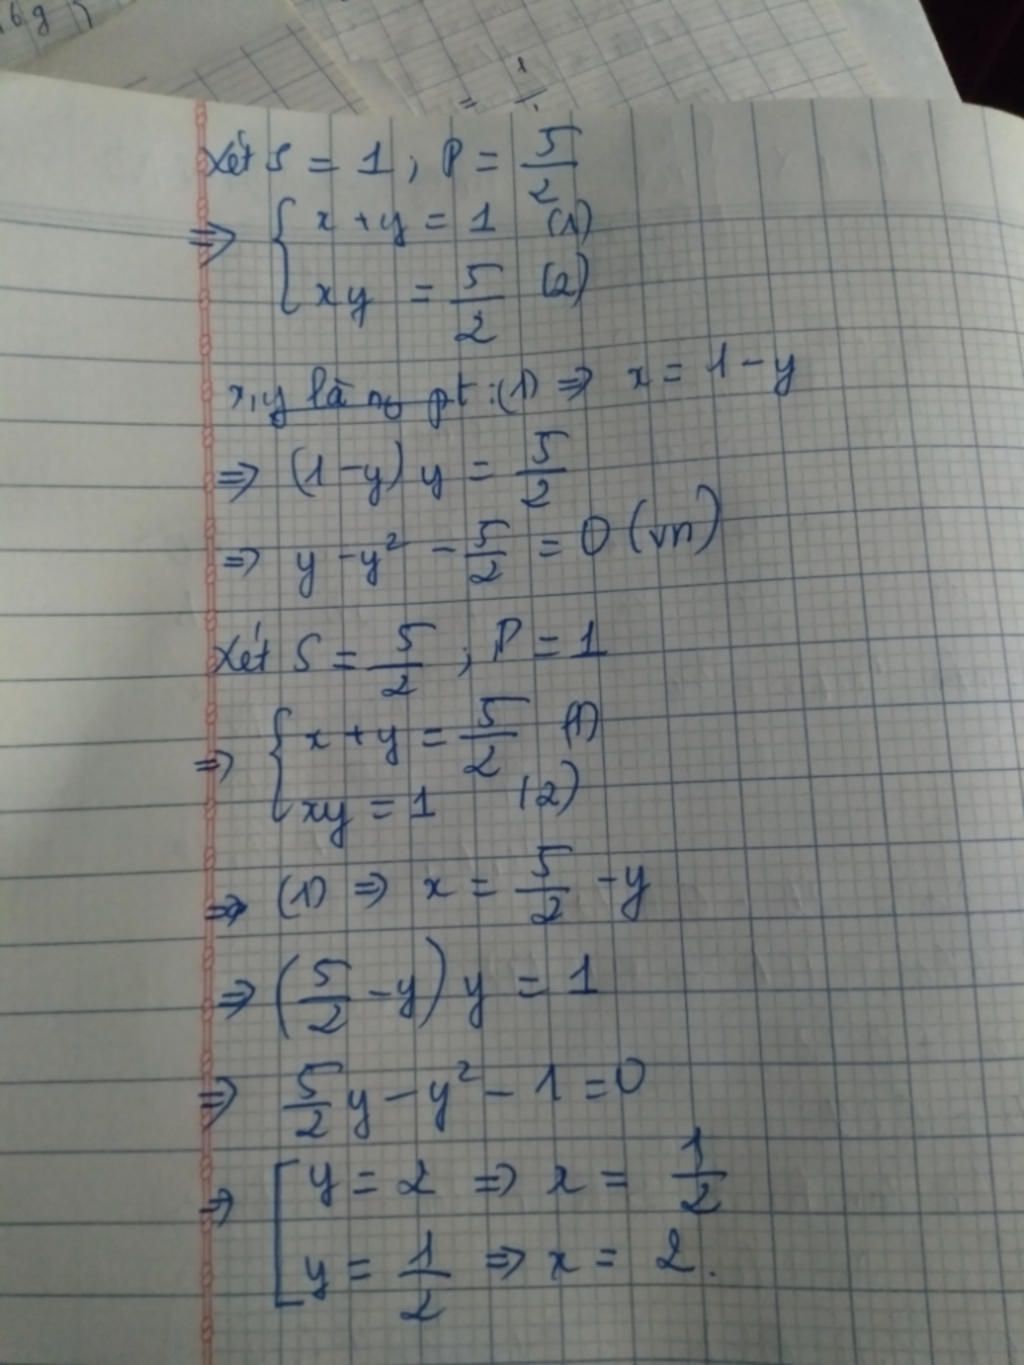 Xét S = 1 ; P = 5/2
=> { x + y = 1 (1)
xy = 5/2 (2)
x, y là no pt : (1) => x = 1 - y
=> (1 - y) y = 5/2
=> y - y² - 5/2 = 0 (vn)
Xét S = 5/2 ; P = 1
=> { x + y = 5/2 (1)
xy = 1 (2)
=> (1) => x = 5/2 - y
=> (5/2 - y) y = 1
=> 5/2 y - y² - 1 = 0
=> [ y = 2 => x = 1/2
y = 1/2 => x = 2.